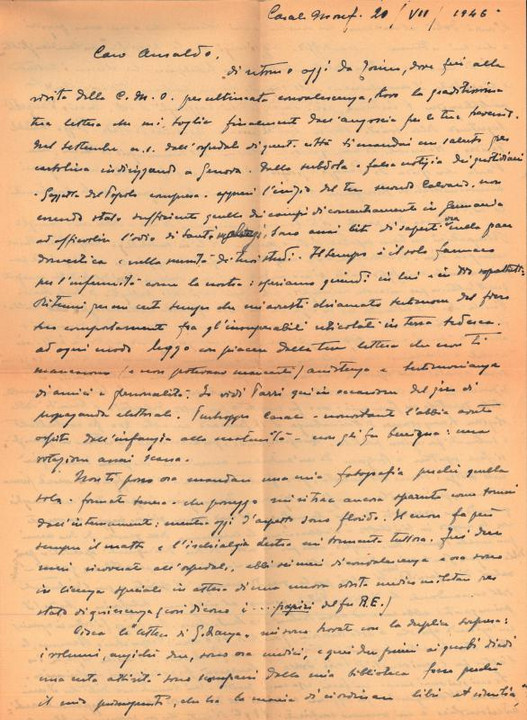 Casale Monf. 20/VII/1946
Caro Ansaldo,
di ritorno oggi da Torino, dove fui alla
visita della C.M.O. per ultimata convalescenza, trovo la graditissima
tua lettera che mi toglie finalmente dall'angoscia per le tue traversie.
Nel settembre u.s. dall'ospedale di questa città ti mandai un saluto per
cartolina indirizzando a Genova. Dalla subdola e falsa notizia dei quotidiani
- Gazzetta del Popolo compresa - appresi l'inizio del tuo secondo Calvario, non
essendo stato sufficiente quello dei campi di concentramento in Germania
ad affievolire l'odio di tanti. Sono assai lieto di saperti ora nella pace
domestica e nella serenità dei tuoi studi. Il tempo è il solo farmaco
per l'infermità come la nostra: speriamo quindi in lui e in Dio soprattutto.
Ritenni per un certo tempo che mi avresti chiamato testimone del fiero
tuo comportamento fra gl'inseparabili reticolati in terra tedesca.
Ad ogni modo leggo con piacere dalla tua lettera che non ti
mancarono (e non potevano mancarti) assistenza e testimonianza
di amici e personalità. Io vidi Parri qui in occasione del giro di
propaganda elettorale. Purtroppo Casale - nonostante l'abbia avuto
ospite dall'infanzia alla maturità - non gli fu benigna: una
votazione assai scarsa.
Non ti posso ora mandare una mia fotografia perché quella
sola - formato tessera - che posseggo mi ritrae ancora sparuto come tornai
dall'internamento: mentre oggi d'aspetto sono florido. Il cuore fa però
sempre il matto e l'ischialgia destra mi tormenta tuttora. Fui due
mesi ricoverato all'ospedale, ebbi sei mesi di convalescenza e ora sono
in licenza speciale in attesa di una nuova visita medico militare per
stato di quiescenza (così dicono i ... papiri del fu R.E.)
Circa le lettere di mi sono trovato con la duplice sorpresa:
i volumi, anziché due, sono ora undici, e quei due primi ai quali diedi
una certa attività sono scomparsi dalla mia biblioteca forse perché
il mio primogenito, che ha la mania di riordinare libri et similia